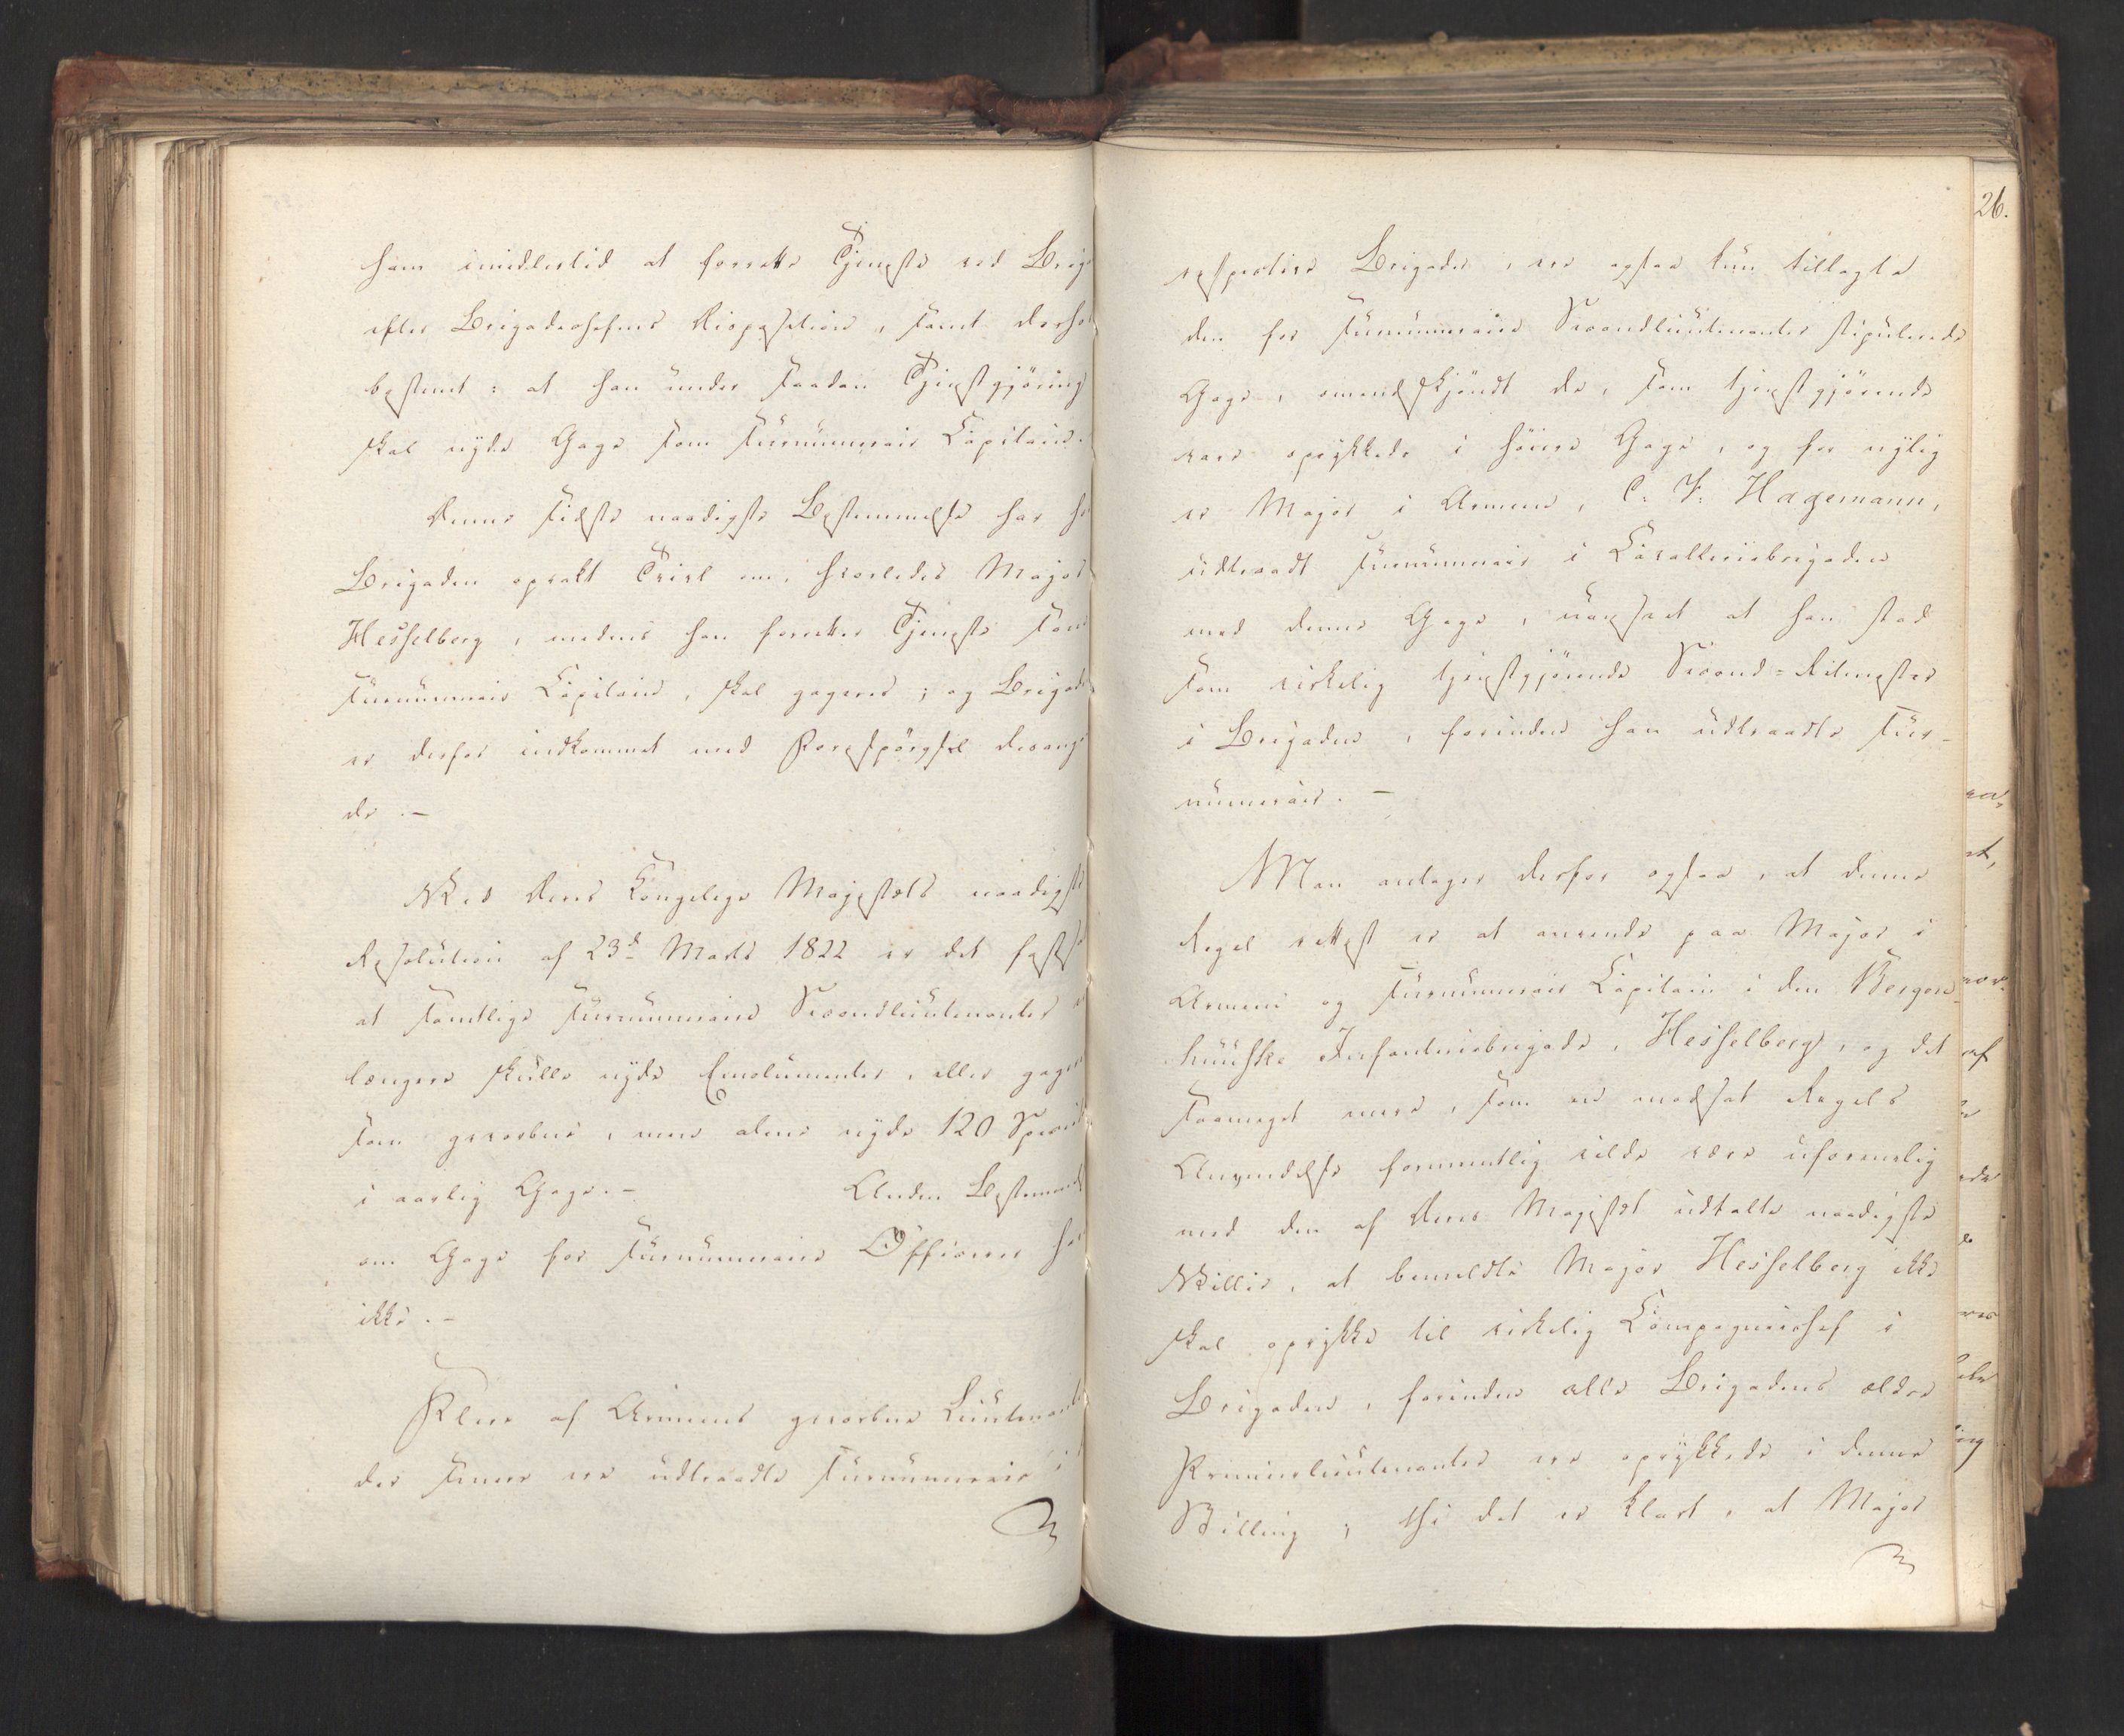 ham imidlertid at forrette Tjeneste ved Brig
efter Brigadechefens Disposition, samt derhos
bestemt: at han under saadan Tjenstgjöring
skal nyde Gage som surnumerair Capitaine.
Denne sidste naadigste Bestemmelse har hos
Brigaden opvakt Tvivl om, hvorledes Major
Hesselberg, medens han forretter Tjeneste som
surnumerair Capitaine, skal gageres; og Brigade
er derfor indkommet med Forespörgsel desang
de.-
Ved Deres Kongelige Majestæts naadigste
Resolution af 23d Marts 1822 er det fasts
at samtlige surnumeraire Secondlieutenanter
længere skulle nyde Emolumenter, eller gage
som gevorbne, men alene nyde 120 Specid
i aarlig Gage.- Anden Bestemmel
om Gage for surnumeraire Officerer ha
ikke.-
Flere af Armeens gevorbne Lieutenant
der senere ere udtraadte surnumeraire i
26.
respective Brigader, ere ogsaa kun tillagte
den for surnumeraire Secondlieutenanter stipulerede
Gage, omendskjöndt de, som tjenstgjörende
vare oprykkede i höiere Gage, og for nylig
er Major i Armeen, C. F. Hagemann,
udtraadt surnumerair i Cavalleriebrigaden
med denne Gage, uagtet at han stod
som virkelig tjenstgjörende Second-Ritmester
i Brigaden, forinden han udtraadte sur-
numerair.-
Man antager derfor ogsaa, at denne
Regel rettest er at anvende paa Major i
Armeen og surnumerair Capitain i den Bergen-
huusske Infanteriebrigade, Hesselberg, og det
saameget mere, som en modsat Regels
Anvendelse formentlig vilde være uforenelig
med den af Deres Majestæt udtalte naadigste
Villie, at bemeldte Major Hesselberg ikke
skal oprykke til virkelig Compagniechef i
Brigaden, forinden alle Brigadens ældre
Premierlieutenanter ere oprykkede i denne
Stilling; thi det er klart, at Major